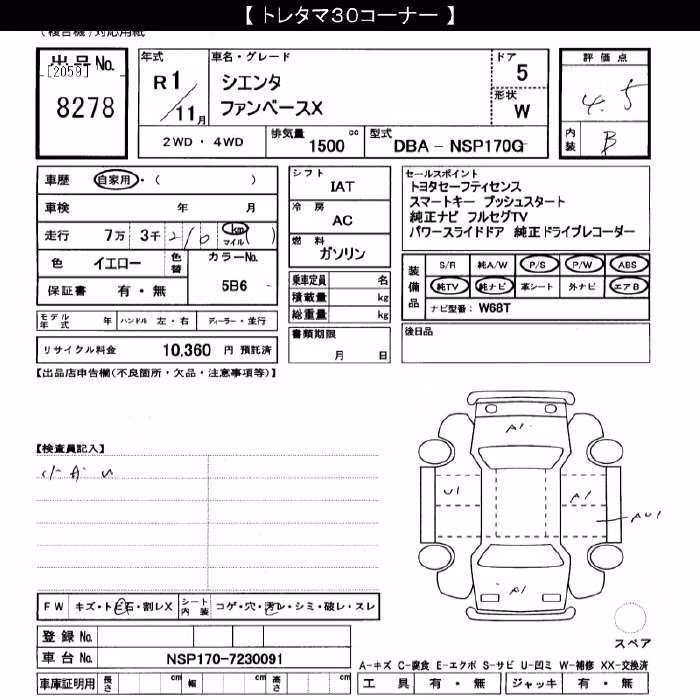 【 トレタマ30コーナー 】
(複合機)対応用紙
出品No.
[2059]
8278
年式
R1
11月
車名・グレード
シエンタ
ファンベースX
ドア
5
形状
W
2WD・4WD
排気量 1500 cc
型式 DBA - NSP170G
評価点
4.5
内装 B
車歴 自家用・( )
車検 年 月
走行 7万 3千 210 km マイル ( )
色 イエロー 色替 カラーNo. 5B6
保証書 有・無
モデル年式 年 ハンドル 左・右 ディーラー・並行
リサイクル料金 10,360 円 預託済
シフト
IAT
冷房
AC
燃料
ガソリン
乗車定員 名
積載量 kg
総重量 kg
書類期限
月 日
セールスポイント
トヨタセーフティセンス
スマートキー プッシュスタート
純正ナビ フルセグTV
パワースライドドア 純正ドライブレコーダー
装備品
S/R 純A/W P/S P/W ABS
純TV 純ナビ 革シート 外ナビ エアB
ナビ型番: W68T
後日品
【出品店申告欄(不良箇所・欠品・注意事項等)】
【検査員記入】
小キU
A1
U1
A1
AU1
A1
FW キズ・トビ石・割レX
シート内装 コゲ・穴・汚レ・シミ・破レ・スレ
スペア
登録No.
車台No. NSP170-7230091
A-キズ C-腐食 E-エクボ S-サビ U-凹ミ W-補修 XX-交換済
車庫証明用 長さ cm 幅 cm 高さ cm
工具 有・無 ジャッキ 有・無